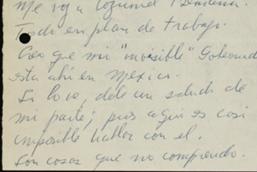 Me voy a
Todo en plan de trabajo.
Creo que mi "invisible" Gobernad
está ahí en Mexico.
Si lo ve, dele un saludo de
mi parte; pues aquí es casi
imposible hablar con el.
Son cosas que no comprendo.